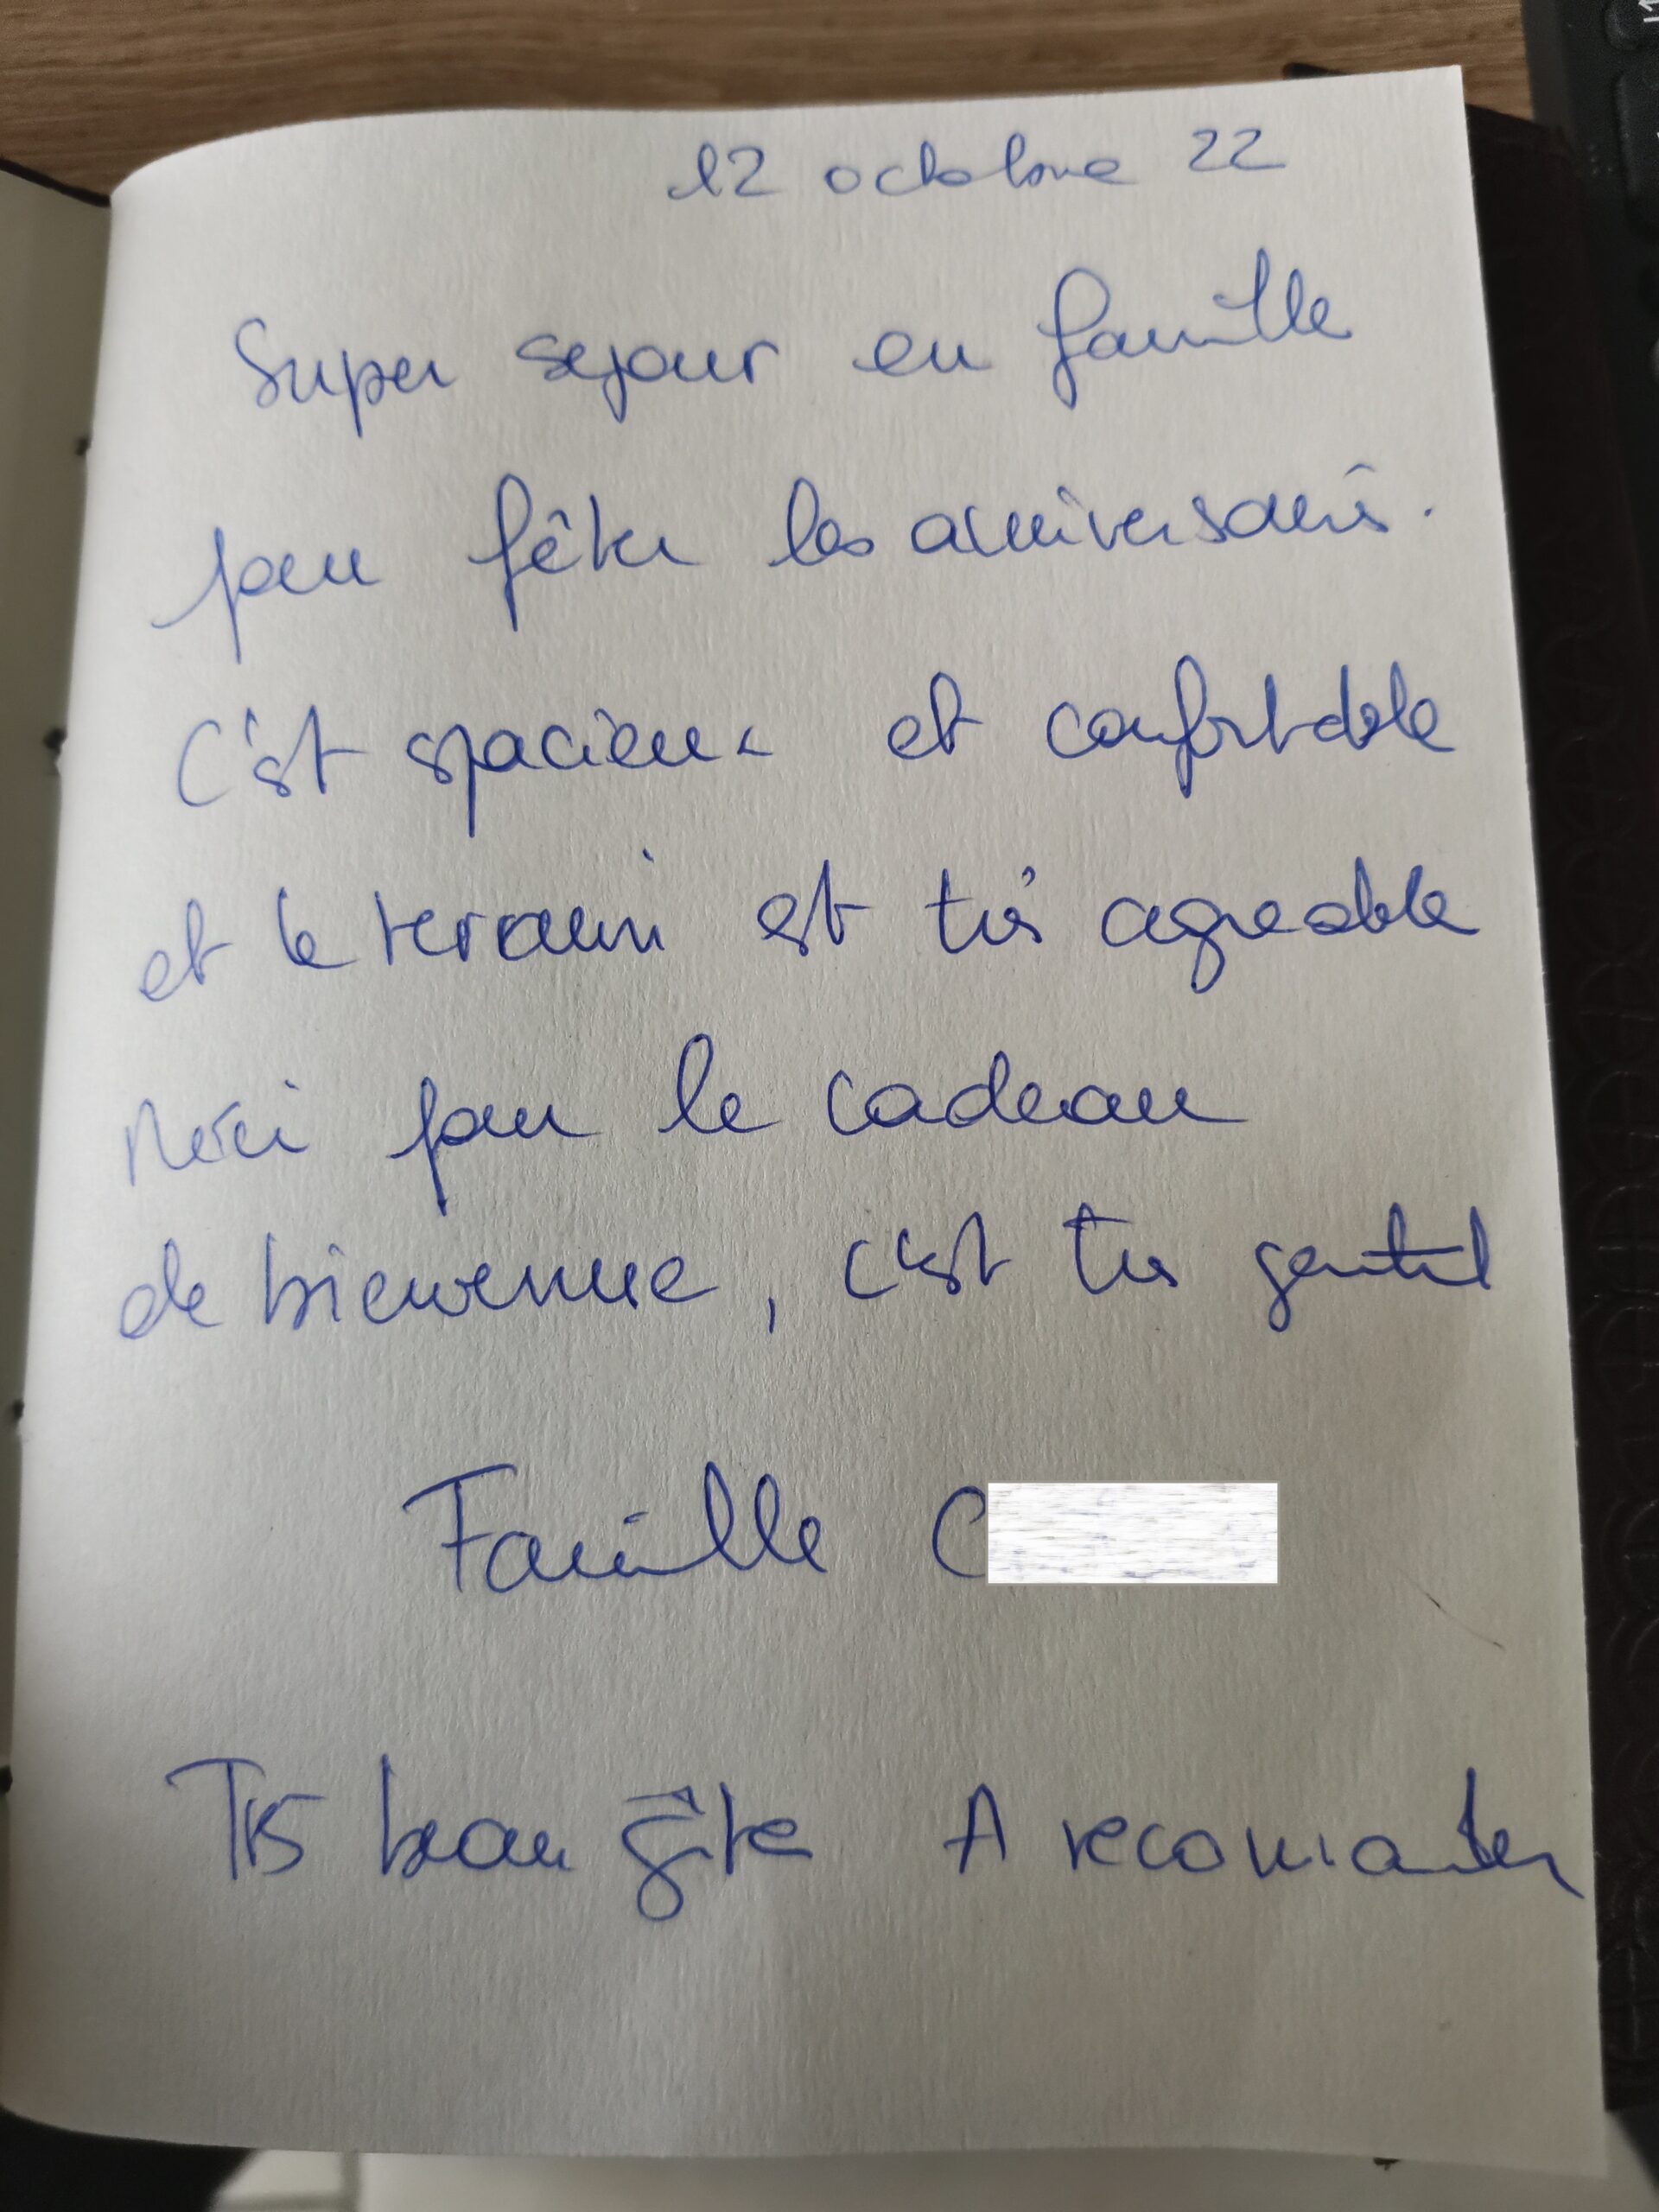 12 octobre 22
Super sejour en famille
pour fêter les anniversaires.
C'est spacieux et confortable
et le terrain est très agreable
Merci pour le cadeau
de bienvenue, c'est tres gentil
Famille C
Très beau gîte A recomander